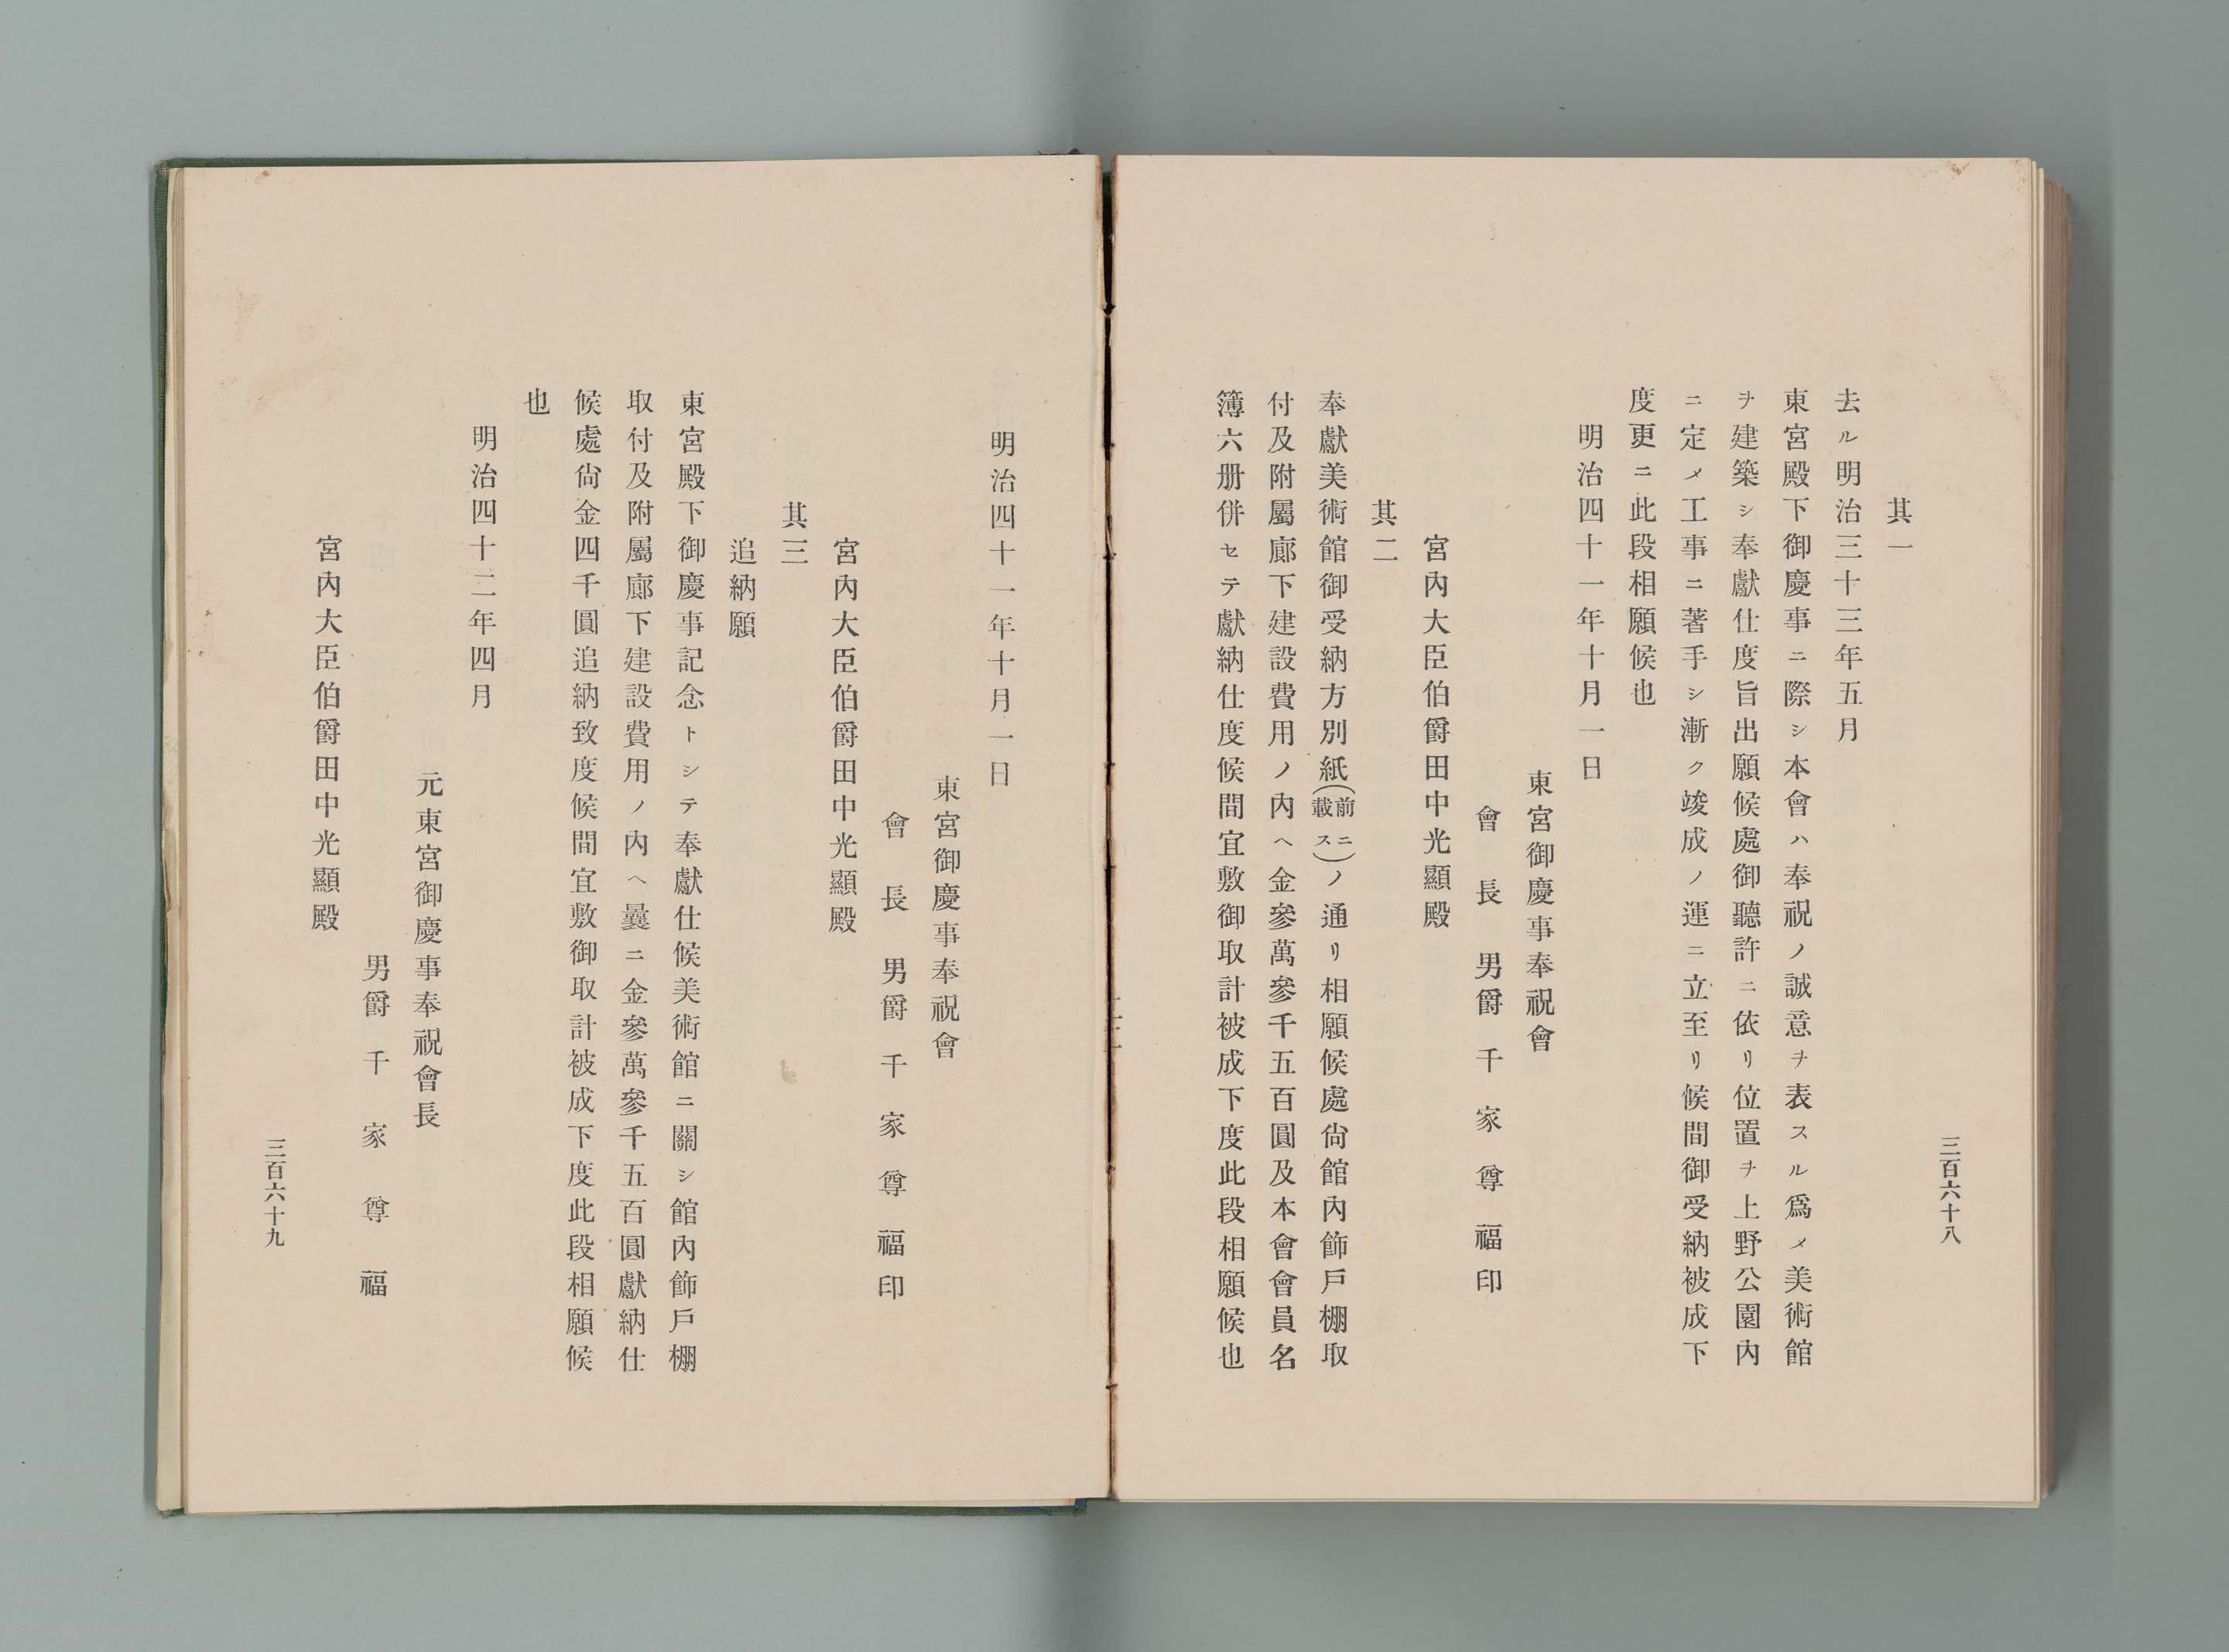 其一
去ル明治三十三年五月
東宮殿下御慶事ニ際シ本會ハ奉祝ノ誠意ヲ表スル爲メ美術館
ヲ建築シ奉獻仕度旨出願候處御聽許ニ依リ位置ヲ上野公園內
ニ定メ工事ニ著手シ漸ク竣成ノ運ニ立至リ候間御受納被成下
度更ニ此段相願候也
明治四十一年十月一日
東宮御慶事奉祝會
會長男爵千家尊福印
宮內大臣伯爵田中光顯殿
其二
奉獻美術館御受納方別紙(前ニ載ス)ノ通リ相願候處尙館內飾戶棚取
付及附屬廊下建設費用ノ內ヘ金參萬參千五百圓及本會會員名
簿六册併セテ獻納仕度候間宜敷御取計被成下度此段相願候也
三百六十八
明治四十一年十月一日
東宮御慶事奉祝會
會長男爵千家尊福印
宮內大臣伯爵田中光顯殿
其三
追納願
東宮殿下御慶事記念トシテ奉獻仕候美術館ニ關シ館內飾戶棚
取付及附屬廊下建設費用ノ內ヘ曩ニ金參萬參千五百圓獻納仕
候處尙金四千圓追納致度候間宜敷御取計被成下度此段相願候
也
明治四十二年四月
元東宮御慶事奉祝會長
男爵千家尊福
宮內大臣伯爵田中光顯殿
三百六十九